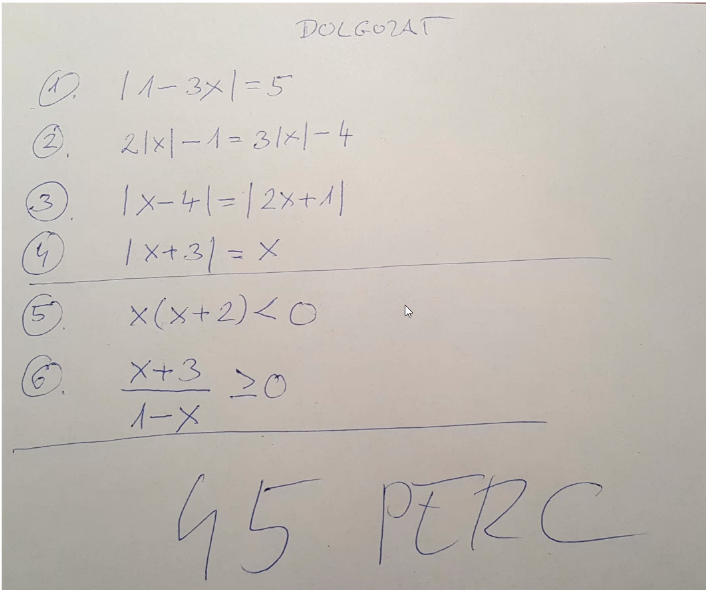 DOLGOZAT
1. |1-3x|=5
2. 2|x|-1=3|x|-4
3. |x-4|=|2x+1|
4 |x+3|=x
5. x(x+2)<0
6. x+3
1-x ≥0
45 PERC